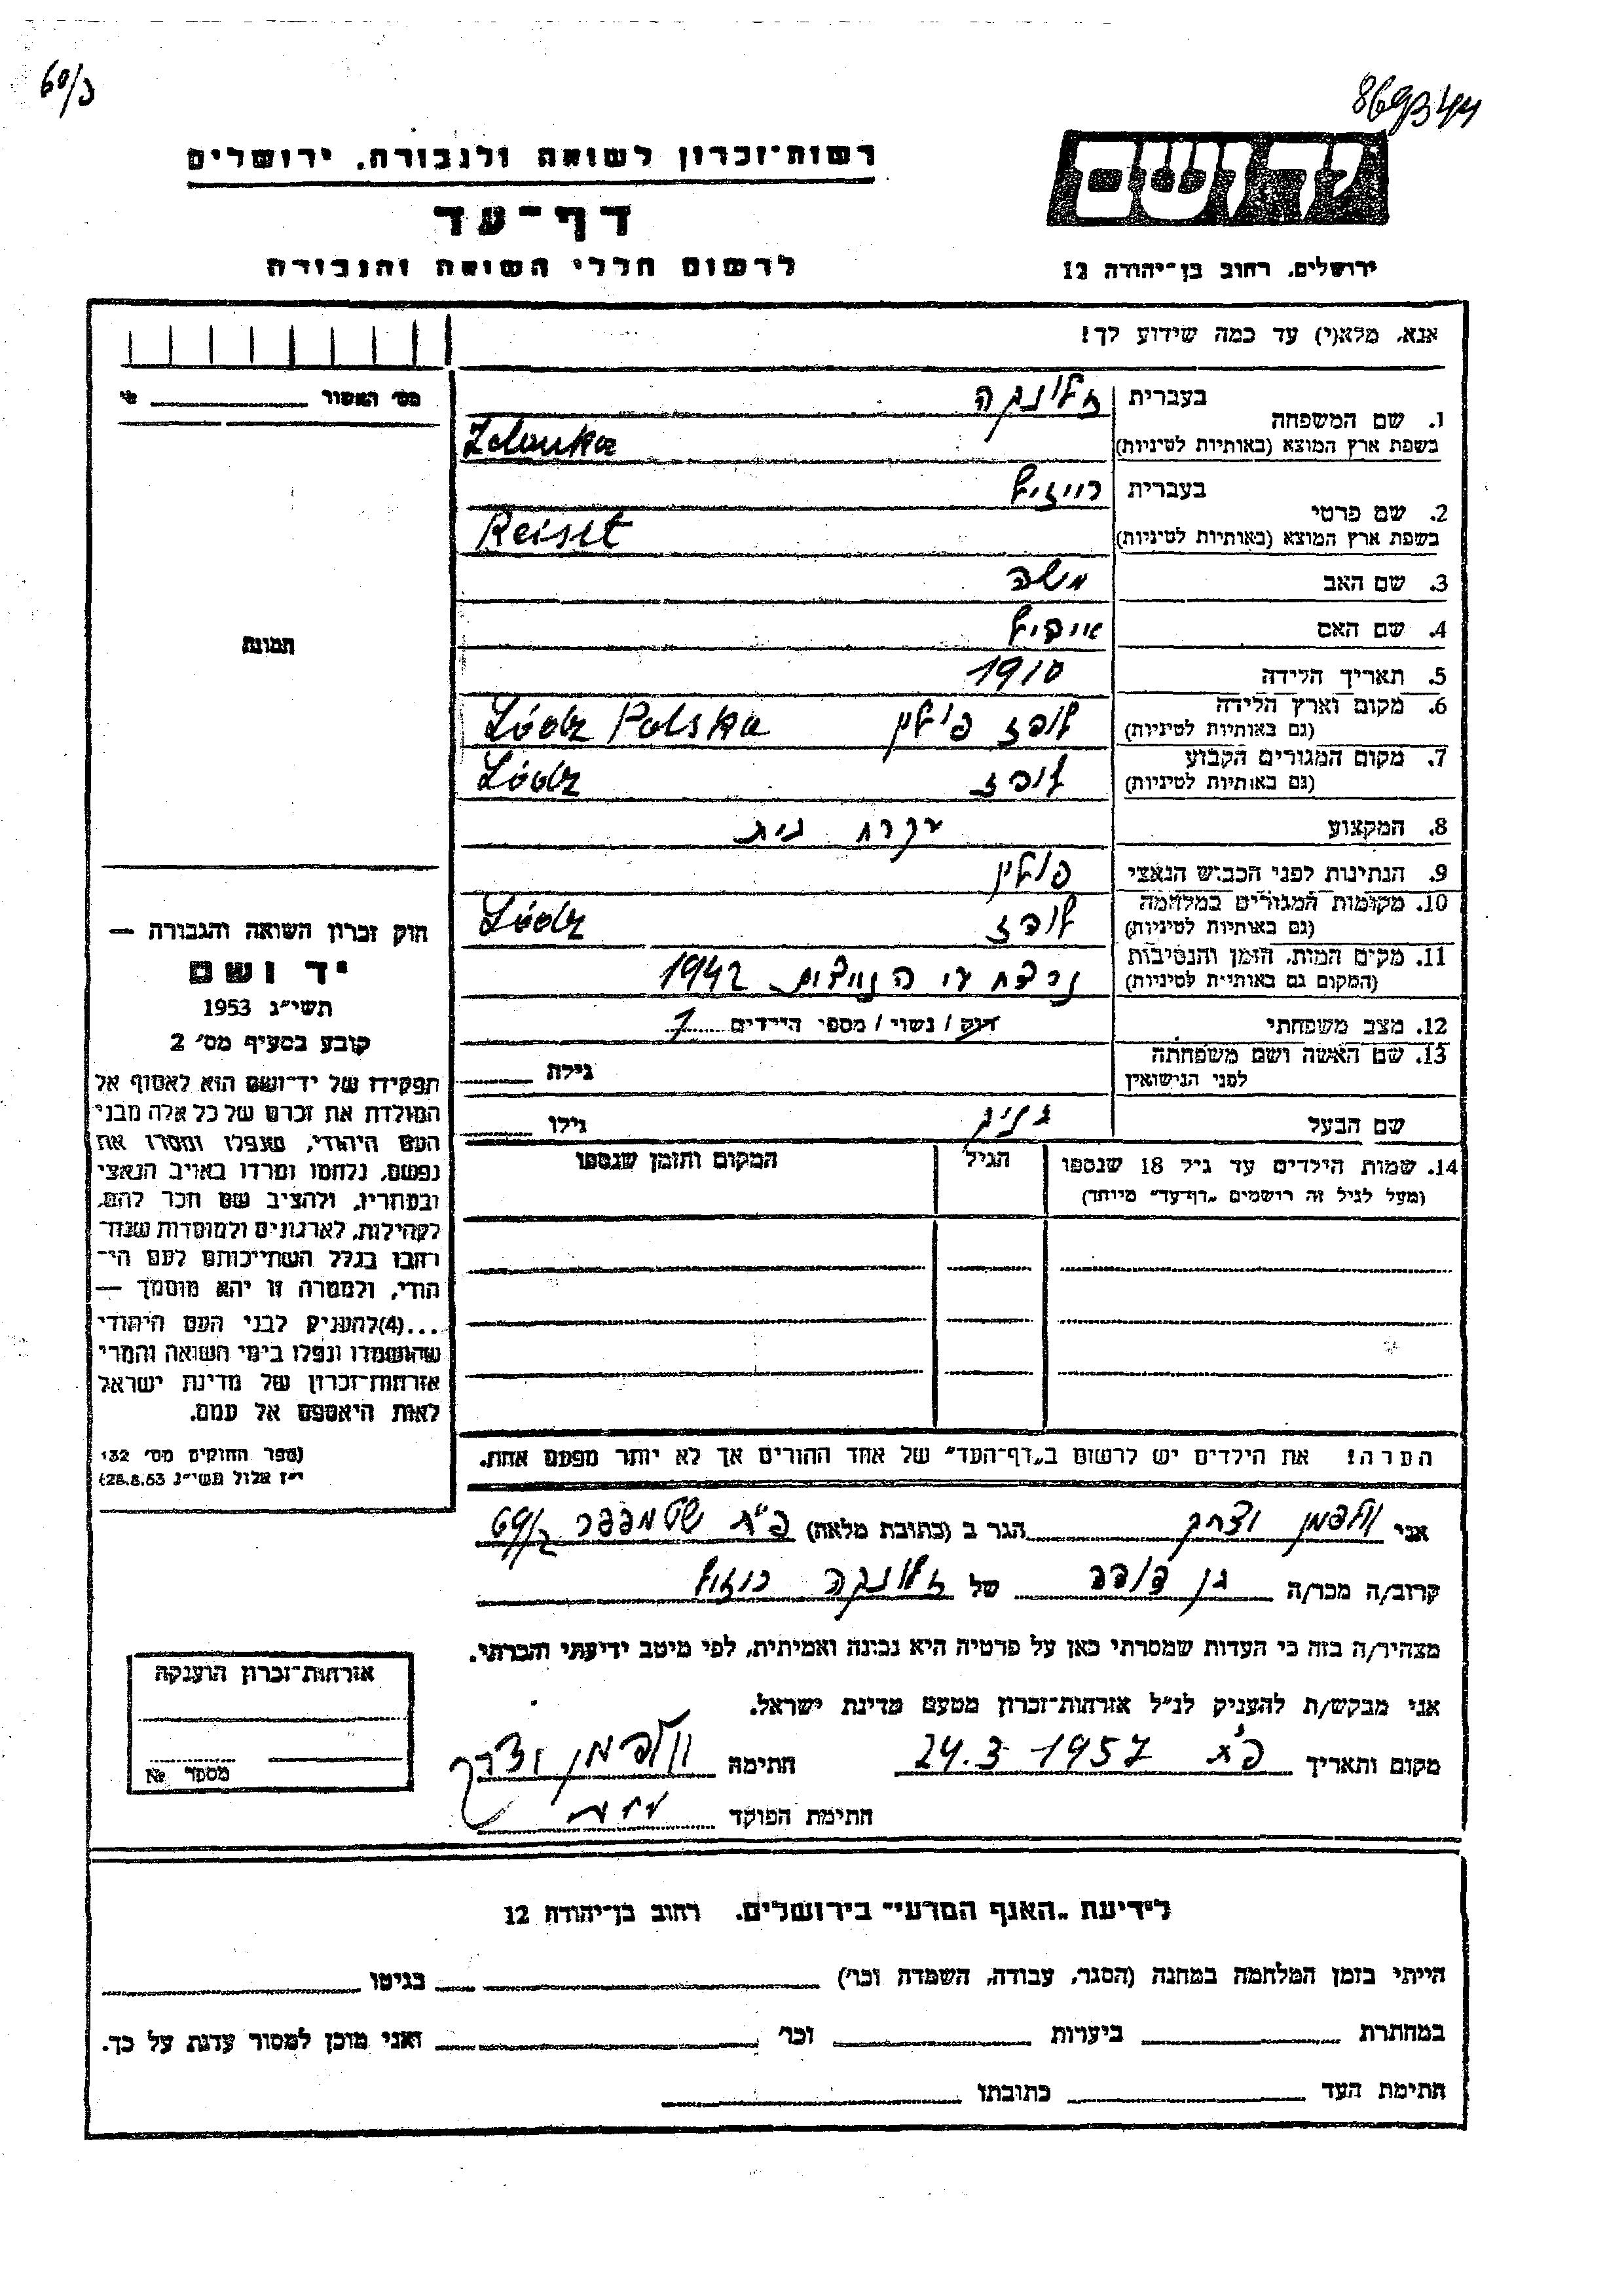 60/3
869344
יד ושם
רשות-זכרון לשואה ולגבורה, ירושלים
דף-עד
לרשום חללי השואה והגבורה
ירושלים, רחוב בן-יהודה 12
אנא, מלא(י) עד כמה שידוע לך!
מס' האשור
1. שם המשפחה
בעברית
בשפת ארץ המוצא (באותיות לטיניות)
2. שם פרטי
בעברית רייזיל
בשפת ארץ המוצא (באותיות לטיניות) Reiset
3. שם האב משה
4. שם האם
5. תאריך הלידה 1910
6. מקום וארץ הלידה לודז פולין Łódz Polska
(גם באותיות לטיניות)
7. מקום המגורים הקבוע לודז Łódz
(גם באותיות לטיניות)
8. המקצוע עקרת בית
9. הנתינות לפני הכבוש הנאצי פולין
10. מקומות המגורים במלחמה לודז Łódz
(גם באותיות לטיניות)
11. מקום המות, הזמן והנסיבות 1942
(המקום גם באותיות לטיניות)
12. מצב משפחתי רווק / נשוי / מספר הילדים 1
13. שם האשה ושם משפחתה
לפני הנישואין
גילה
שם הבעל
גילו
14. שמות הילדים עד גיל 18 שנספו
(מעל לגיל זה רושמים "דף-עד" מיוחד)
הגיל
המקום והזמן שנספו
הערה: את הילדים יש לרשום ב"דף-העד" של אחד ההורים אך לא יותר מפעם אחת.
תמונה
חוק זכרון השואה והגבורה —
יד ושם
תשי"ג 1953
קובע בסעיף מס' 2
תפקידו של יד-ושם הוא לאסוף אל
המולדת את זכרם של כל אלה מבני
העם היהודי, שנפלו ומסרו את
נפשם, נלחמו ומרדו באויב הנאצי
ובעוזריו, ולהציב שם וזכר להם,
לקהילות, לארגונים ולמוסדות שנח-
רבו בגלל השתייכותם לעם הי-
הודי, ולמטרה זו יהא מוסמך —
...(4)להעניק לבני העם היהודי
שהושמדו ונפלו בימי השואה והמרי
אזרחות-זכרון של מדינת ישראל
לאות היאספם אל עמם.
(ספר החוקים מס' 132
י"ז אלול תשי"ג 28.8.53)
אני הגר ב (כתובת מלאה)
קרוב/ה מכר/ה בן דודה של
מצהיר/ה בזה כי העדות שמסרתי כאן על פרטיה היא נכונה ואמיתית, לפי מיטב ידיעתי והכרתי.
אני מבקש/ת להעניק לנ"ל אזרחות-זכרון מטעם מדינת ישראל.
מקום ותאריך פ"ת 24.3 1957 חתימה
חתימת הפוקד
אזרחות-זכרון הוענקה
מספר №
לידיעת "האגף המדעי" בירושלים, רחוב בן-יהודה 12
הייתי בזמן המלחמה במחנה (הסגר, עבודה, השמדה וכו') בגיטו
במחתרת ביערות וכו' ואני מוכן למסור עדות על כך.
חתימת העד כתובתו